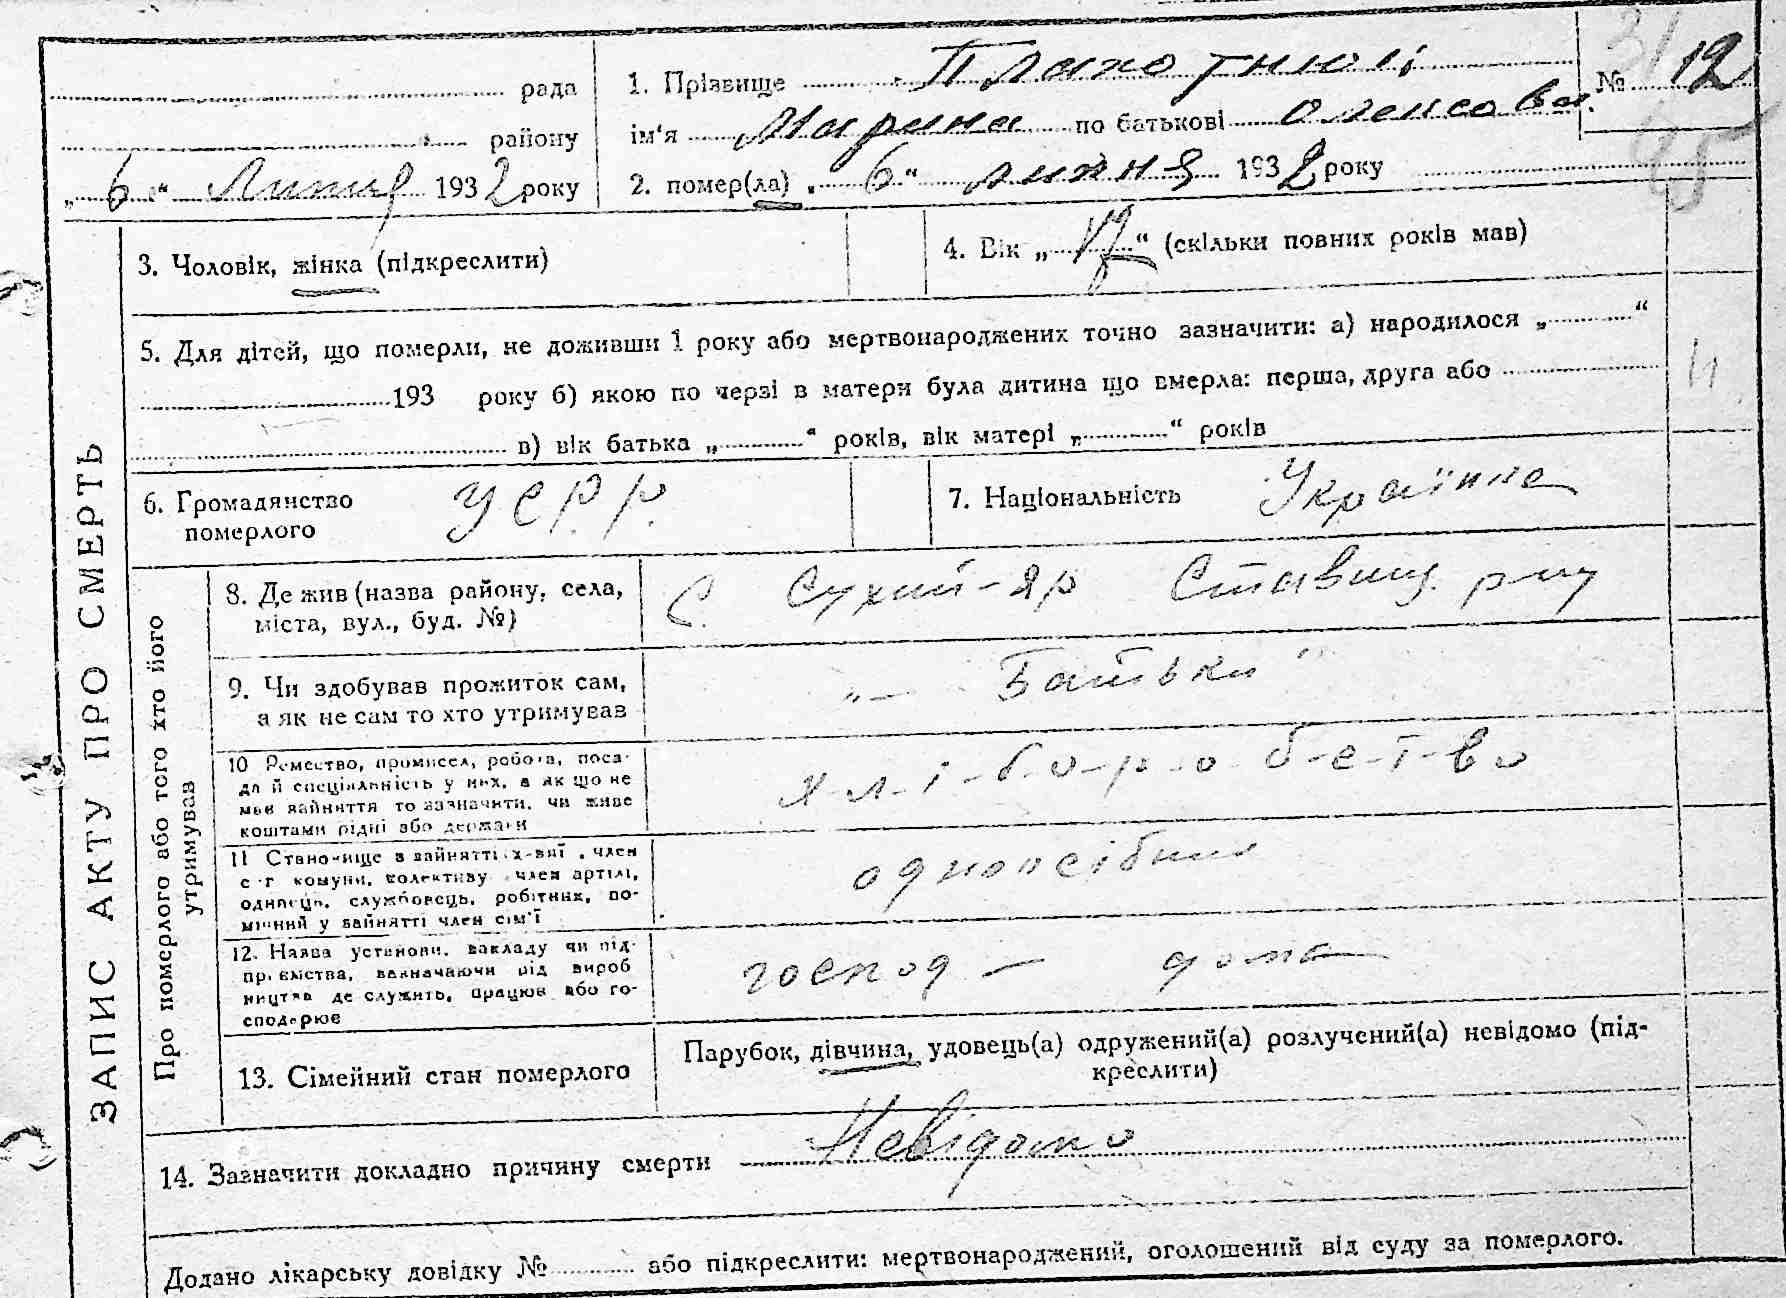 31
рада
району
„6“ Липця 1932 року
1. Прізвище Плахотнюк
№ 12
ім'я Марина по батькові
85
2. помер(ла) „6“ липня 1932 року
ЗАПИС АКТУ ПРО СМЕРТЬ
3. Чоловік, жінка (підкреслити)
4. Вік „ “ (скільки повних років мав)
5. Для дітей, що померли, не доживши 1 року або мертвонароджених точно зазначити: а) народилося „ “
193 року б) якою по черзі в матери була дитина що вмерла: перша, друга або
в) вік батька „ “ років, вік матері „ “ років
6. Громадянство
померлого
УСРР.
7. Національність Українка
Про померлого або того хто його
утримував
8. Де жив (назва району, села,
міста, вул., буд. №)
С. Сухий-Яр Ставищ. р-ну
9. Чи здобував прожиток сам,
а як не сам то хто утримував
„— Батьки
10 Ремество, промисел, робота, поса-
да й спеціяльність у них, а як що не
має зайняття то зазначити, чи живе
коштами рідні або держави
х-л-і-б-о-р-о-б-с-т-во
11 Становище в зайнятті: х-зяї , член
с-г комуни, колективу член артілі,
одинець, службовець, робітник, по-
мічний у зайнятті член сім'ї
одноосібник
12. Назва установи, закладу чи під-
приємства, зазначаючи від вироб
ництва де служить, працює або го-
сподарює
господ — дома
13. Сімейний стан померлого
Парубок, дівчина, удовець(а) одружений(а) розлучений(а) невідомо (під-
креслити)
14. Зазначити докладно причину смерти Невідомо
Додано лікарську довідку № або підкреслити: мертвонароджений, оголошений від суду за померлого.